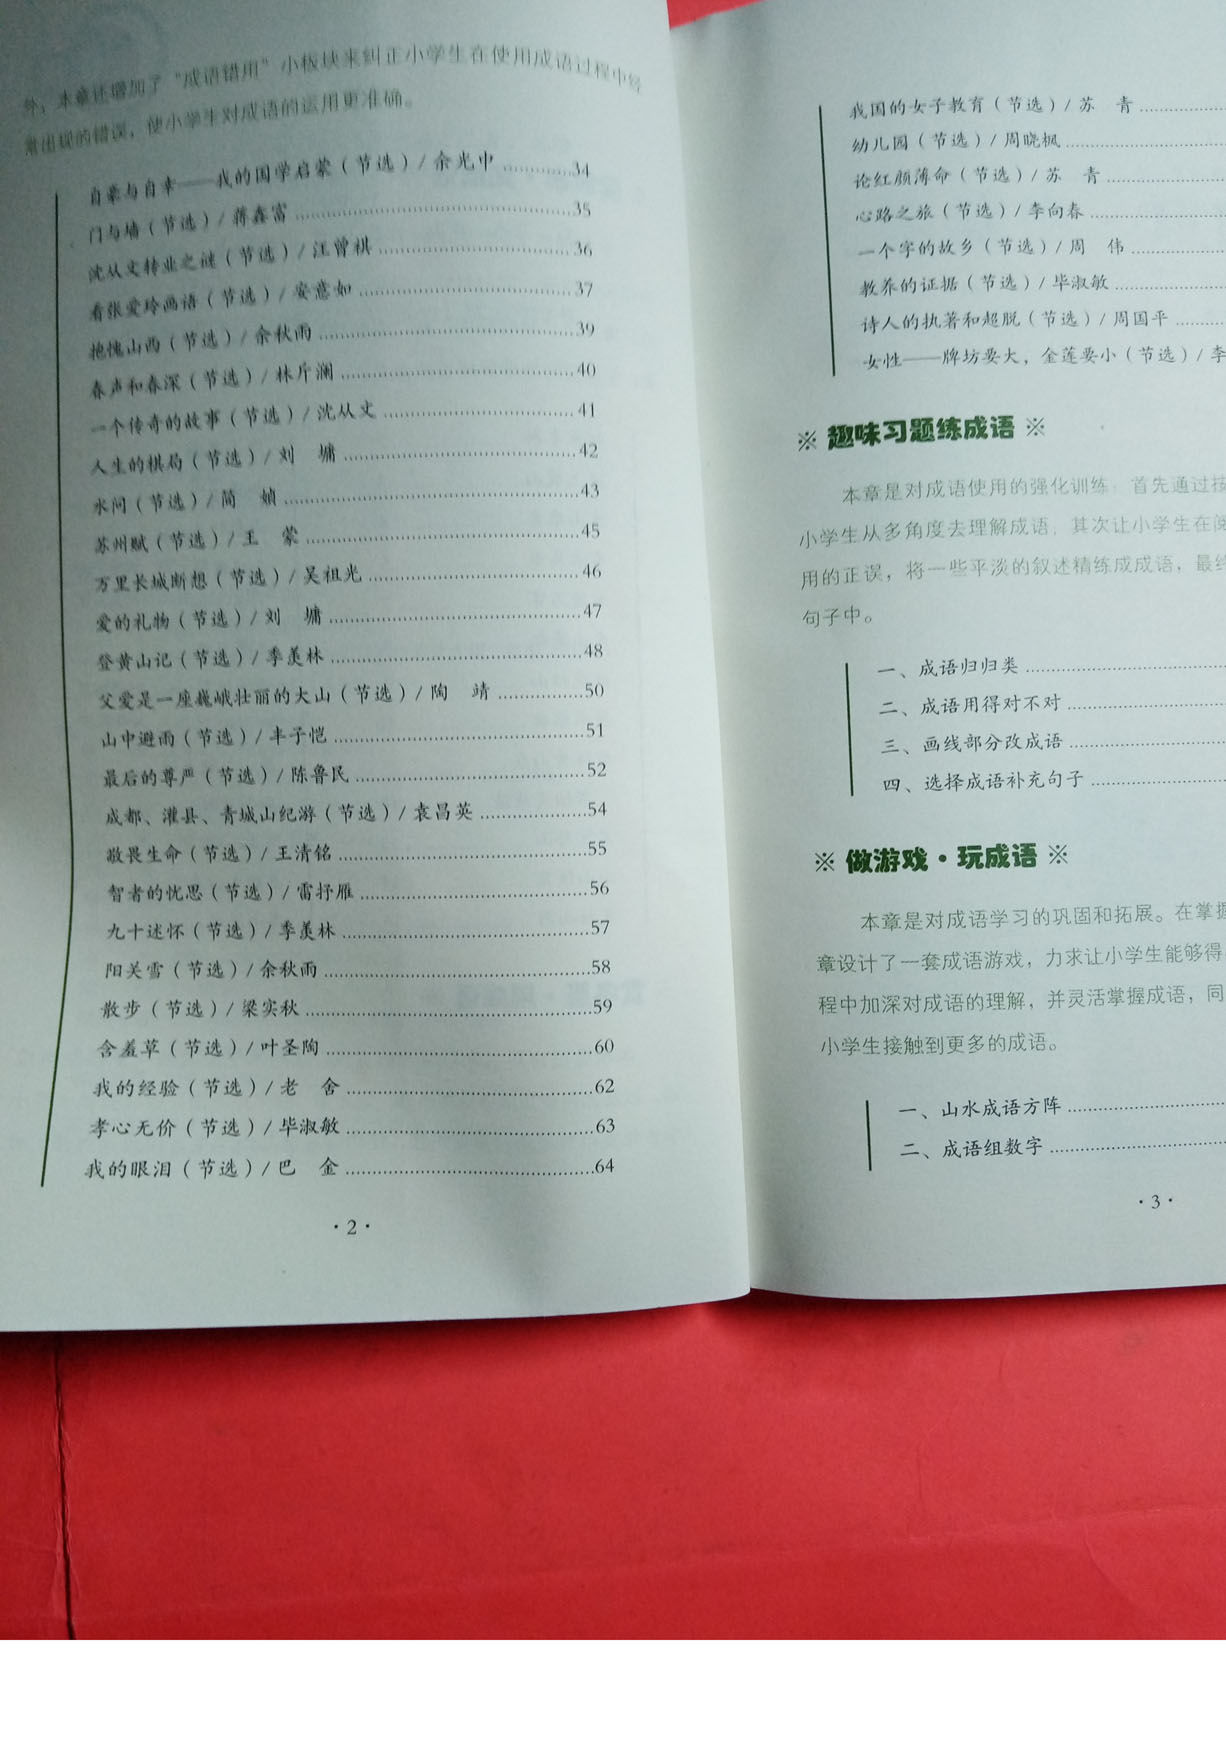 外，本章还增加了“成语错用”小板块来纠正小学生在使用成语过程中经
常出现的错误，使小学生对成语的运用更准确。
自豪与自幸——我的国学启蒙（节选）/ 余光中 ............34
门与墙（节选）/ 蒋鑫富 ............35
沈从文转业之谜（节选）/ 汪曾祺 ............36
看张爱玲画语（节选）/ 安意如 ............37
抱愧山西（节选）/ 余秋雨 ............39
春声和春深（节选）/ 林斤澜 ............40
一个传奇的故事（节选）/ 沈从文 ............41
人生的棋局（节选）/ 刘　墉 ............42
水问（节选）/ 简　媜 ............43
苏州赋（节选）/ 王　蒙 ............45
万里长城断想（节选）/ 吴祖光 ............46
爱的礼物（节选）/ 刘　墉 ............47
登黄山记（节选）/ 季羡林 ............48
父爱是一座巍峨壮丽的大山（节选）/ 陶　靖 ............50
山中避雨（节选）/ 丰子恺 ............51
最后的尊严（节选）/ 陈鲁民 ............52
成都、灌县、青城山纪游（节选）/ 袁昌英 ............54
敬畏生命（节选）/ 王清铭 ............55
智者的忧思（节选）/ 雷抒雁 ............56
九十述怀（节选）/ 季羡林 ............57
阳关雪（节选）/ 余秋雨 ............58
散步（节选）/ 梁实秋 ............59
含羞草（节选）/ 叶圣陶 ............60
我的经验（节选）/ 老　舍 ............62
孝心无价（节选）/ 毕淑敏 ............63
我的眼泪（节选）/ 巴　金 ............64
· 2 ·
我国的女子教育（节选）/ 苏　青 ............
幼儿园（节选）/ 周晓枫 ............
论红颜薄命（节选）/ 苏　青 ............
心路之旅（节选）/ 李向春 ............
一个字的故乡（节选）/ 周　伟 ............
教养的证据（节选）/ 毕淑敏 ............
诗人的执著和超脱（节选）/ 周国平 ............
女性——牌坊要大，金莲要小（节选）/ 李
※ 趣味习题练成语 ※
本章是对成语使用的强化训练，首先通过按
小学生从多角度去理解成语，其次让小学生在阅
用的正误，将一些平淡的叙述精练成成语，最终
句子中。
一、成语归归类 ............
二、成语用得对不对 ............
三、画线部分改成语 ............
四、选择成语补充句子 ............
※ 做游戏·玩成语 ※
本章是对成语学习的巩固和拓展。在掌握
章设计了一套成语游戏，力求让小学生能够得
程中加深对成语的理解，并灵活掌握成语，同
小学生接触到更多的成语。
一、山水成语方阵 ............
二、成语组数字 ............
· 3 ·